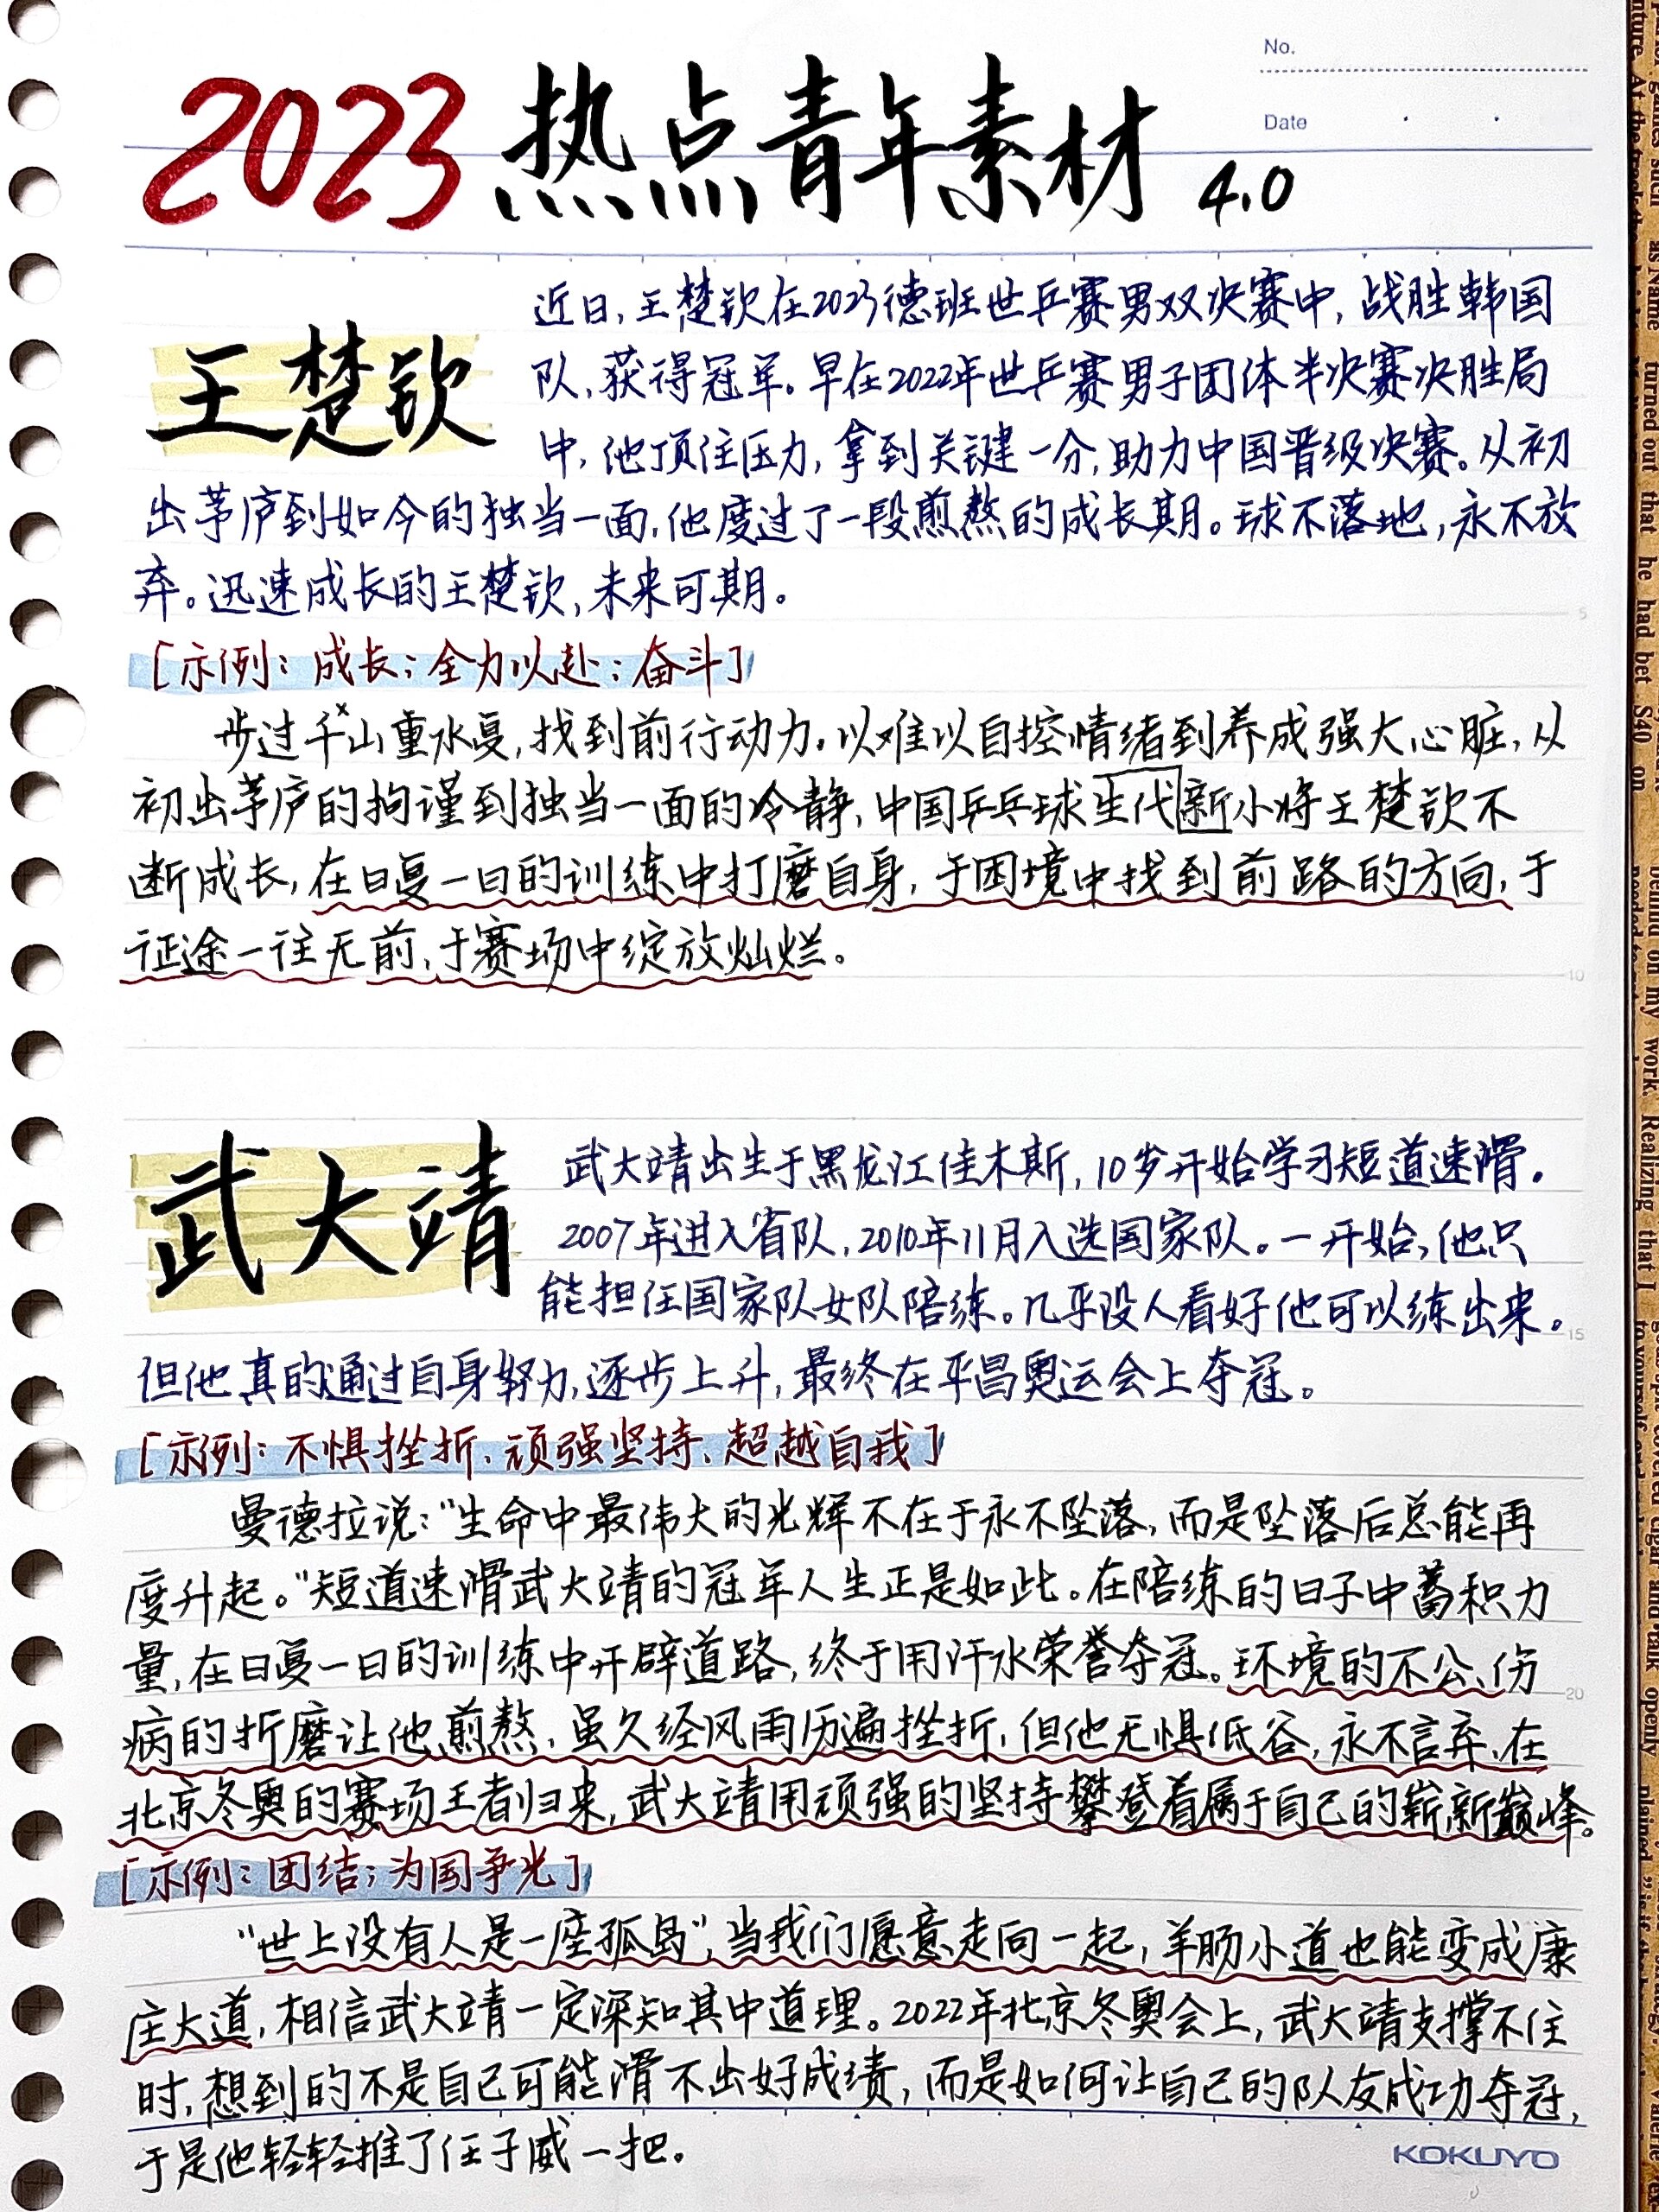 No.
Date
2023热点青年素材 4.0
王楚钦
近日,王楚钦在2023德班世乒赛男双决赛中,战胜韩国
队,获得冠军。早在2022年世乒赛男子团体半决赛决胜局
中,他顶住压力,拿到关键一分,助力中国晋级决赛。从初
出茅庐到如今的独当一面,他度过了一段煎熬的成长期。球不落地,永不放
弃。迅速成长的王楚钦,未来可期。
[示例:成长;全力以赴;奋斗]
步过千山重水复,找到前行动力。以难以自控情绪到养成强大心脏,从
初出茅庐的拘谨到独当一面的冷静,中国乒乓球生代新小将王楚钦不
断成长,在日复一日的训练中打磨自身,于困境中找到前路的方向,于
征途一往无前,于赛场中绽放灿烂。
武大靖
武大靖出生于黑龙江佳木斯,10岁开始学习短道速滑。
2007年进入省队,2010年11月入选国家队。一开始,他只
能担任国家队女队陪练。几乎没人看好他可以练出来。
但他真的通过自身努力,逐步上升,最终在平昌奥运会上夺冠。
[示例:不惧挫折、顽强坚持、超越自我]
曼德拉说:“生命中最伟大的光辉不在于永不坠落,而是坠落后总能再
度升起。”短道速滑武大靖的冠军人生正是如此。在陪练的日子中蓄积力
量,在日复一日的训练中开辟道路,终于用汗水荣誉夺冠。环境的不公、伤
病的折磨让他煎熬,虽久经风雨历遍挫折,但他无惧低谷,永不言弃,在
北京冬奥的赛场王者归来,武大靖用顽强的坚持攀登着属于自己的崭新巅峰。
[示例:团结;为国争光]
“世上没有人是一座孤岛”,当我们愿意走向一起,羊肠小道也能变成康
庄大道,相信武大靖一定深知其中道理。2022年北京冬奥会上,武大靖支撑不住
时,想到的不是自己可能滑不出好成绩,而是如何让自己的队友成功夺冠,
于是他轻轻推了任子威一把。
KOKUYO